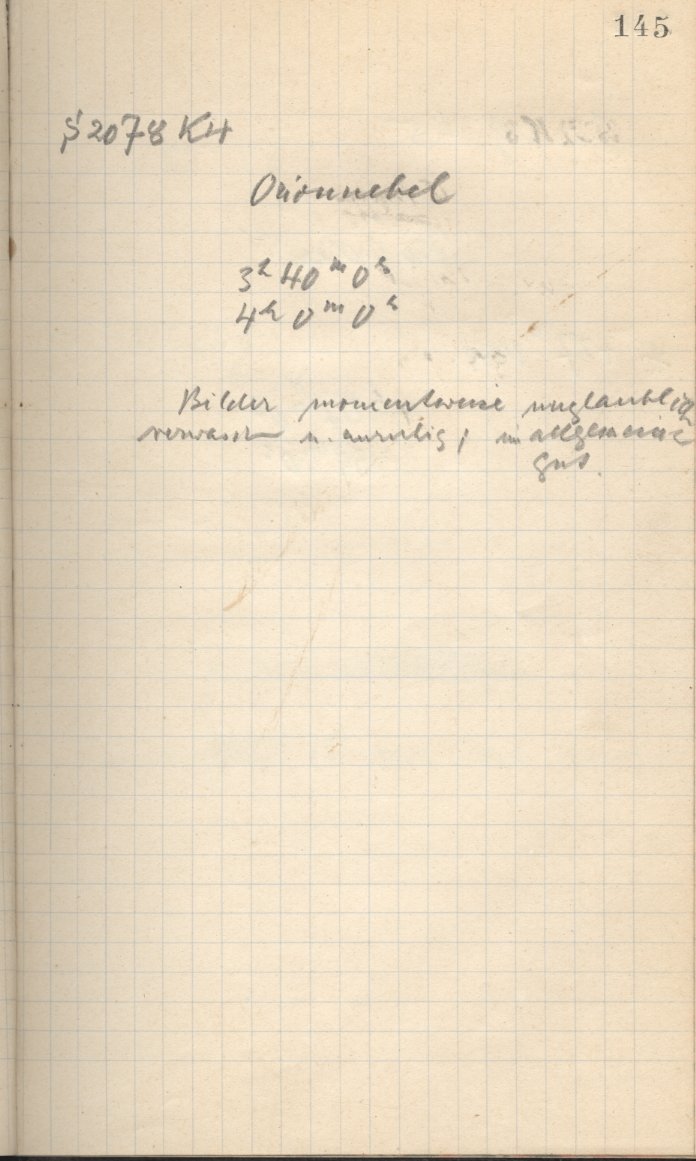 145
S 2078 K4
Orionnebel
3h 40m 0s
4h 0m 0s
Bilder momentweise unglaublich
verwaschen u. unruhig; im allgemeinen
gut.